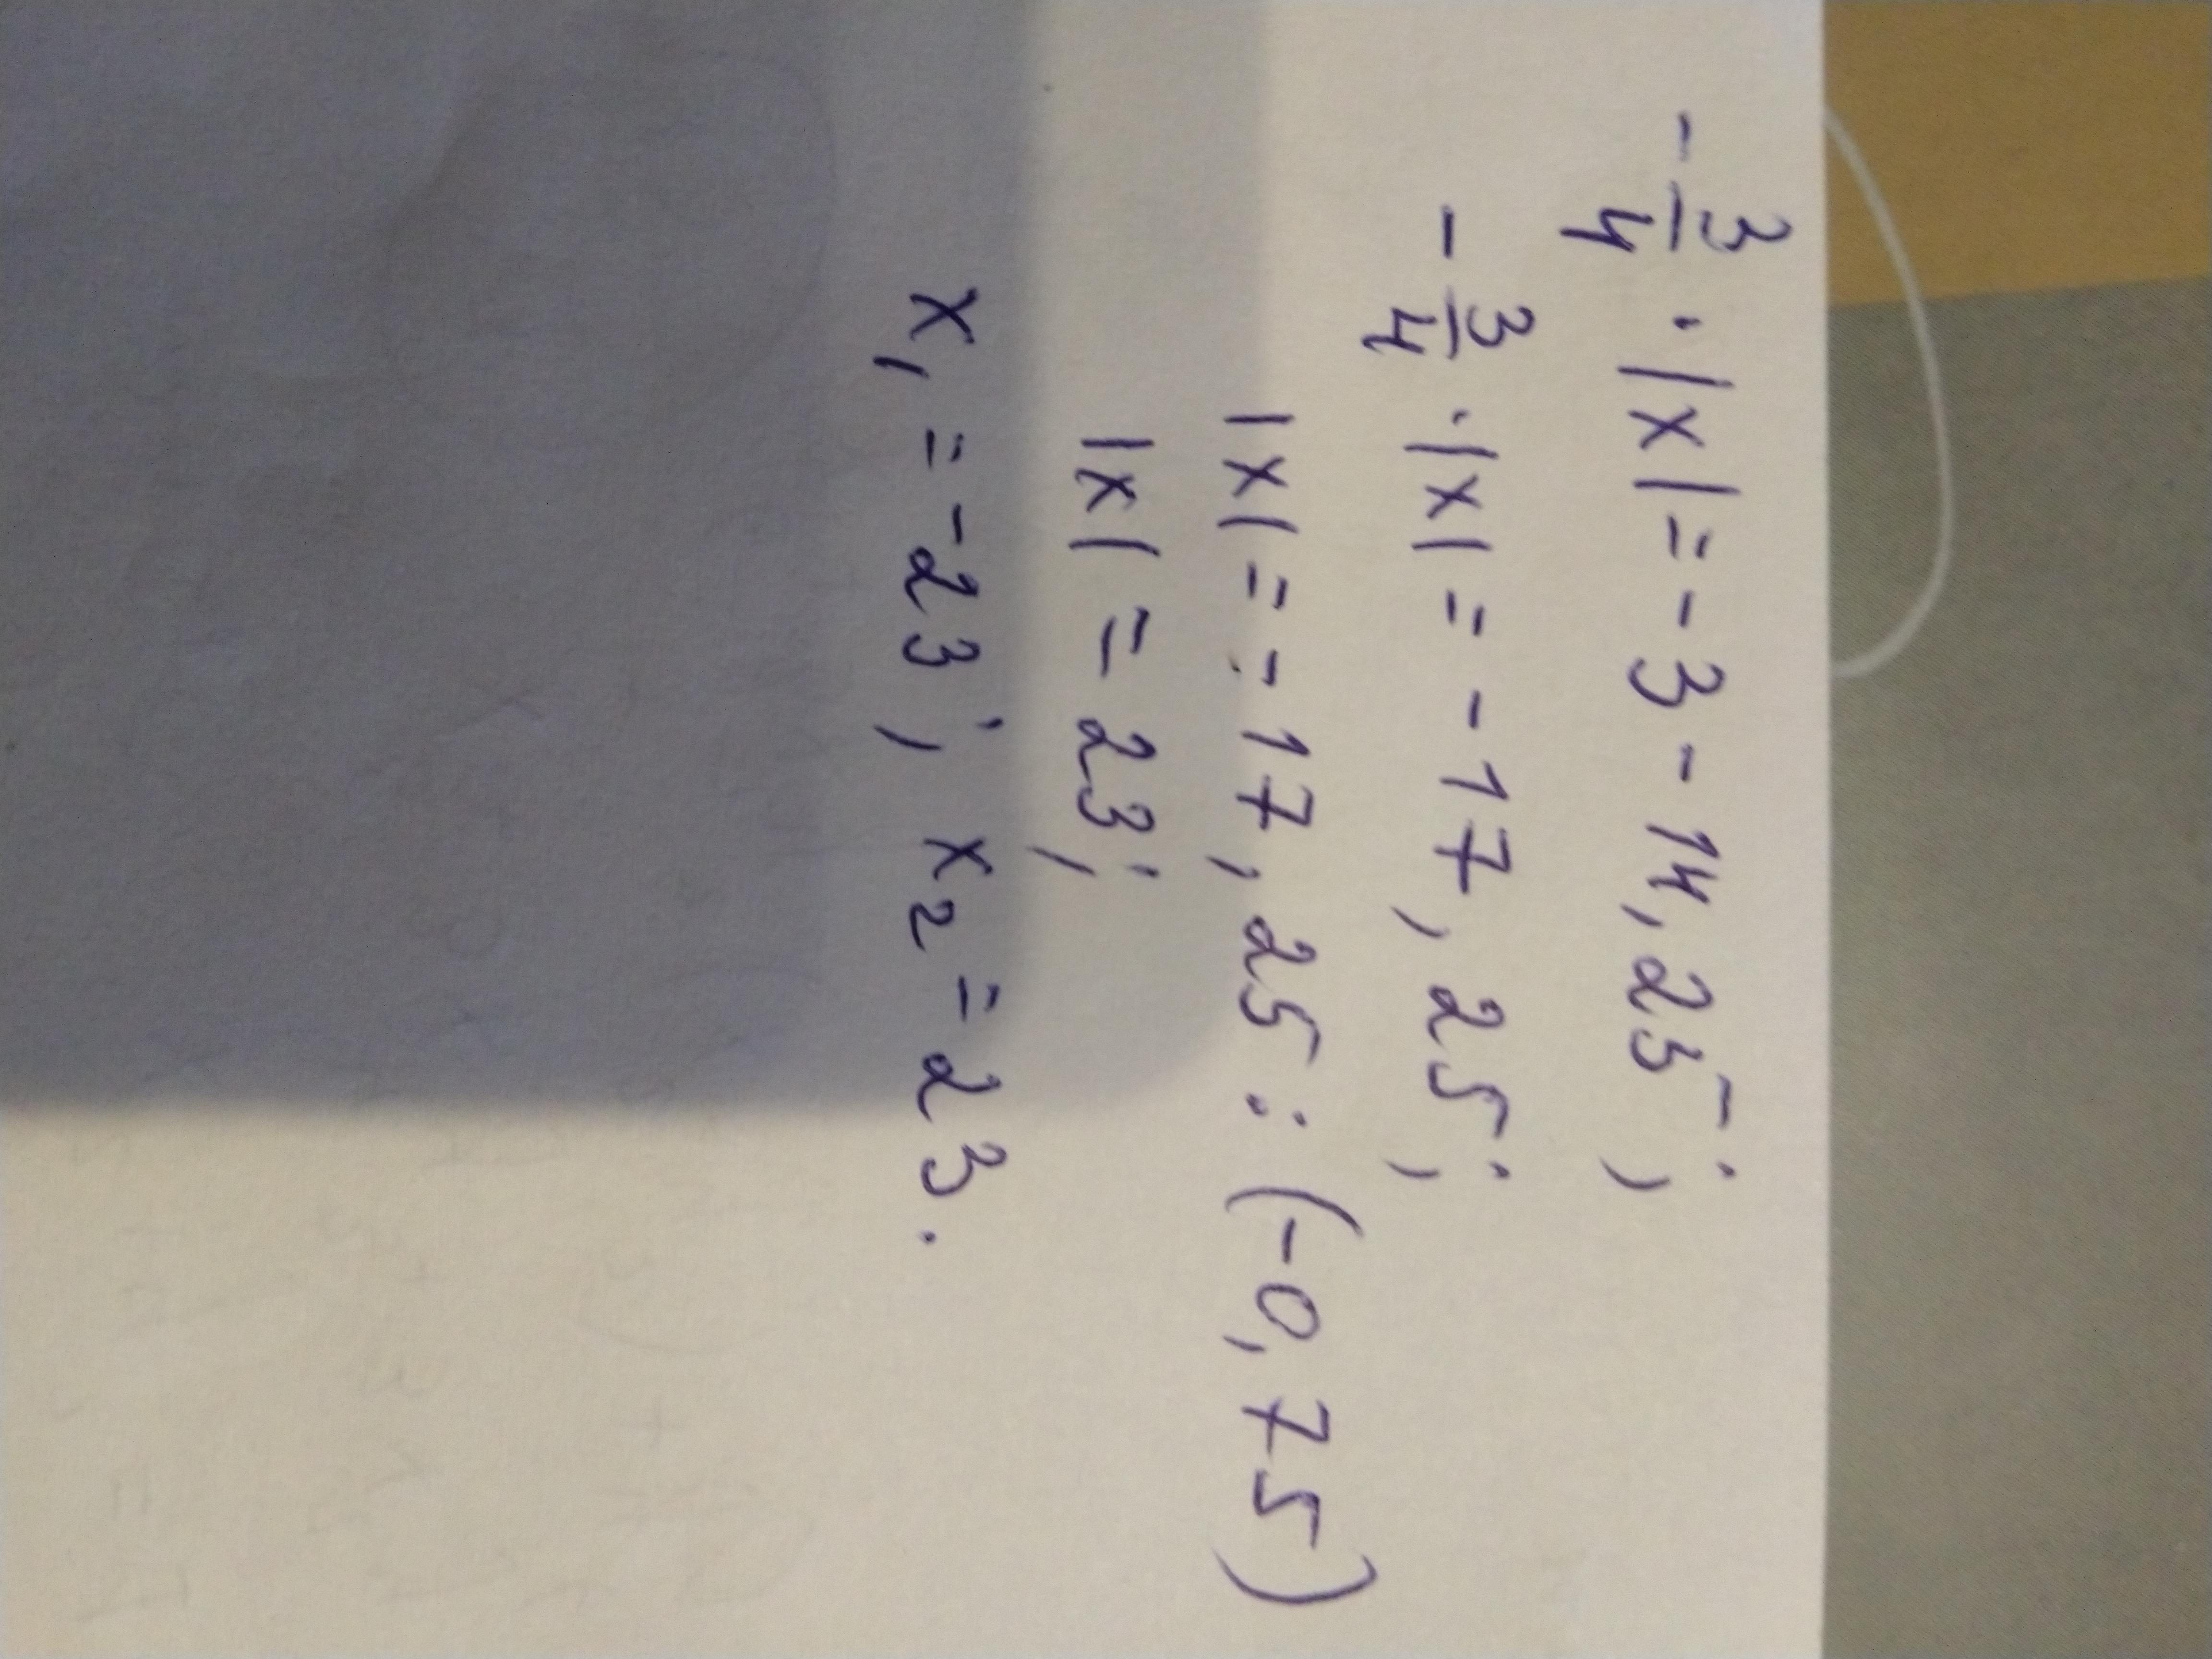 -3/4 · |x| = -3 - 14,25;
-3/4 · |x| = -17,25;
|x| = -17,25 : (-0,75)
|x| = 23;
x₁ = -23; x₂ = 23.